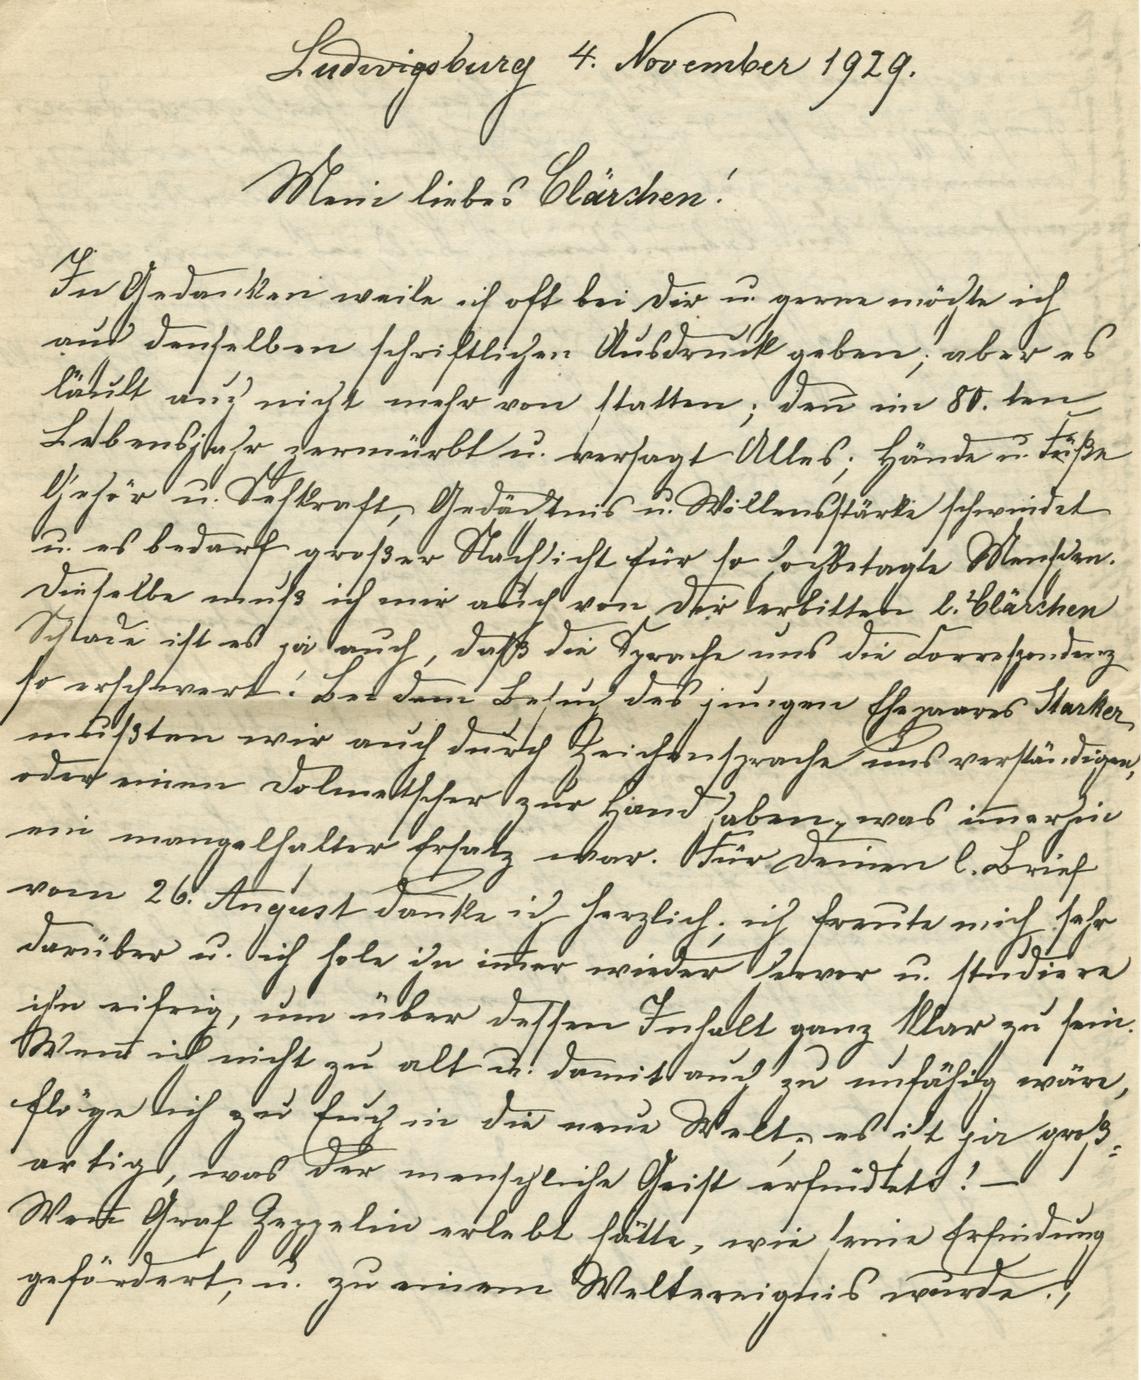 Ludwigsburg 4. November 1929.
Mein liebes Clärchen!
In Gedanken weile ich oft bei Dir u. gerne möchte ich
auch denselben schriftlichen Ausdruck geben; aber es
läuft auch nicht mehr von statten; den̄ im 80. ten
Lebensjahr zermürbt u. versagt Alles; Hände u. Füße
Gehör u. Sehkraft, Gedächtnis u. Willensstärke schwindet
u. es bedarf großer Nachsicht für so hochbetagte Menschen.
Dieselbe muß ich mir auch von Dir erbitten l. Clärchen
Schade ist es ja auch, daß die Sprache uns die Correspondenz
so erschwert! Bei dem Besuch des jungen Ehepaares Starker
mußten wir auch durch Zeichensprache uns verständigen,
oder einen Dolmetscher zur Hand haben, was im̄erhin
ein mangelhafter Ersatz war. Für Deinen l. Brief
vom 26. August danke ich herzlich; ich freute mich sehr
darüber u. ich hole ihn im̄er wieder hervor u. studiere
ihn eifrig, um über dessen Inhalt ganz klar zu sein.
Wen̄ ich nicht zu alt u. damit auch zu unfähig wäre,
flöge ich zu Euch in die neue Welt, es ist ja groß=
artig, was der menschliche Geist erfindet! —
Wen̄ Graf Zeppelin erlebt hätte, wie seine Erfindung
gefördert, u. zu einem Weltereignis wurde.,